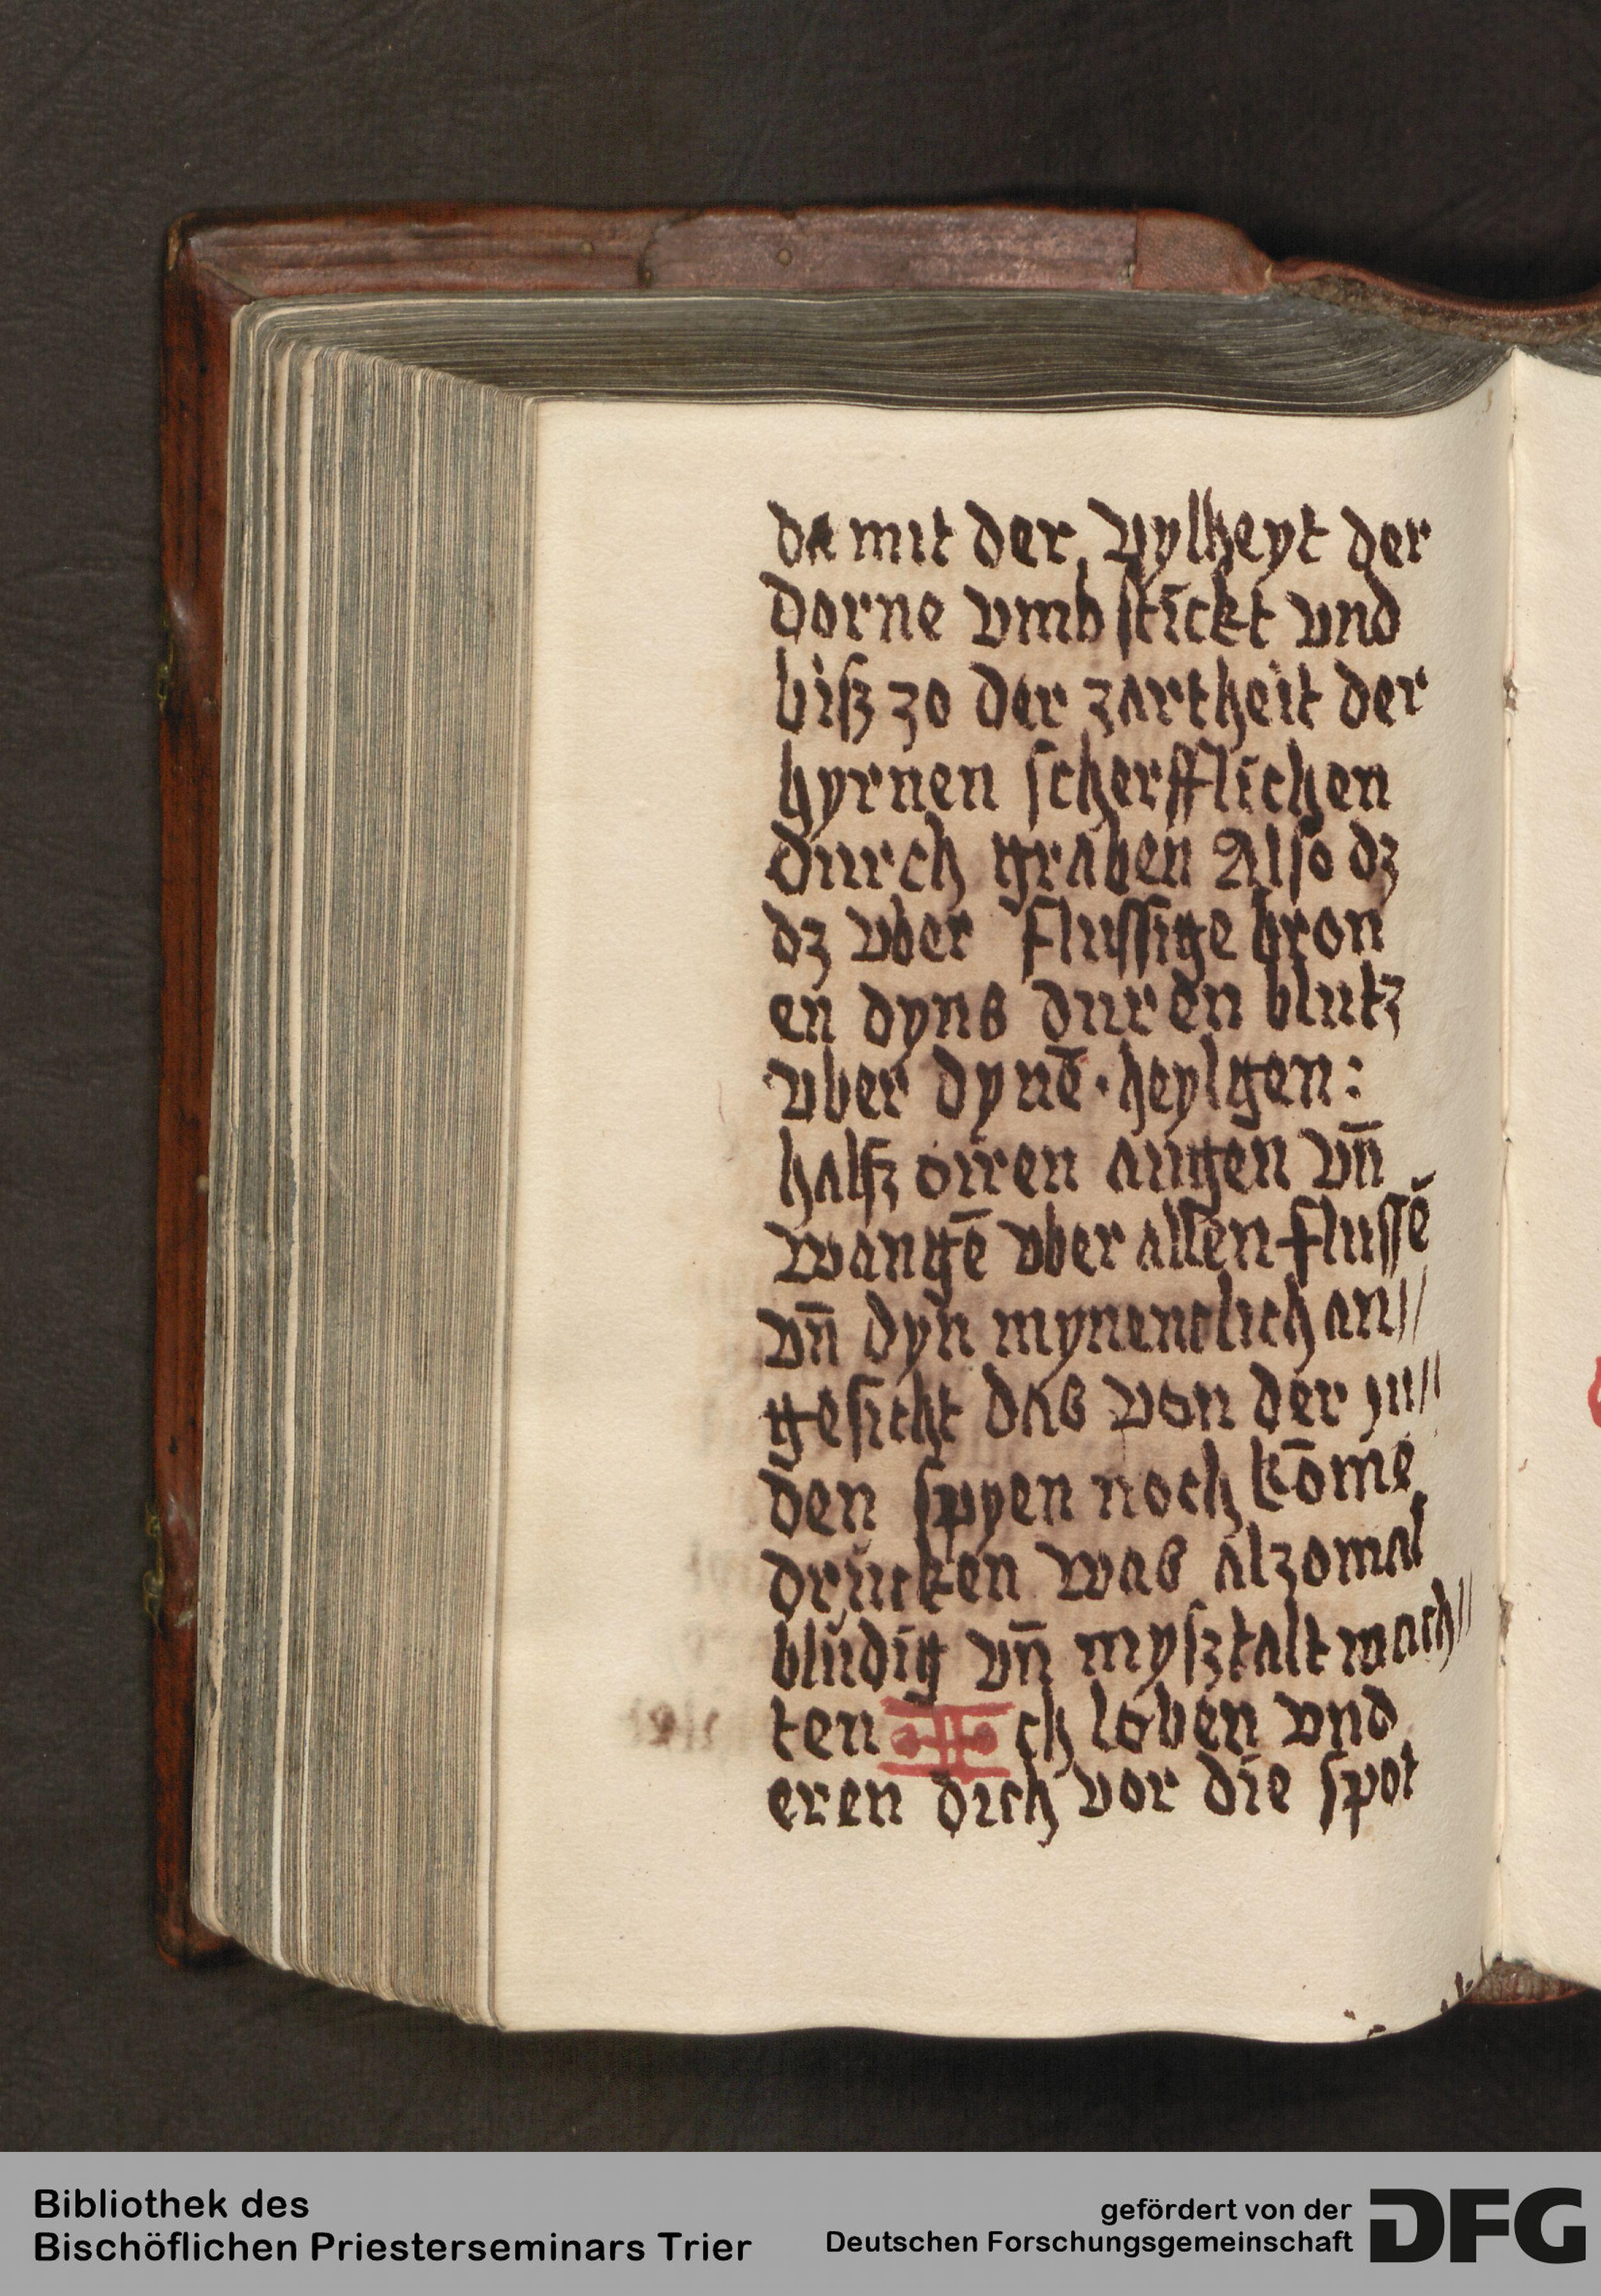 da mit der vylheyt der
dorne vmb stickt vnd
biß zo der zartheit der
hyrnen scherfflichen
durch graben Also dz
dz vber flussige bron
en dyns duren blutz
vber dynē · heylgen :
halsz oiren augen vn̄
wangē vber allen flussē
vn̄ dyn mynenclich an//
gesicht das von der ju//
den spyen noch kōme
drucken was alzomal
bludig vn̄ mysztalt mach//
ten Ich loben vnd
eren dich vor die spot
Bibliothek des
Bischöflichen Priesterseminars Trier
gefördert von der
Deutschen Forschungsgemeinschaft
DFG